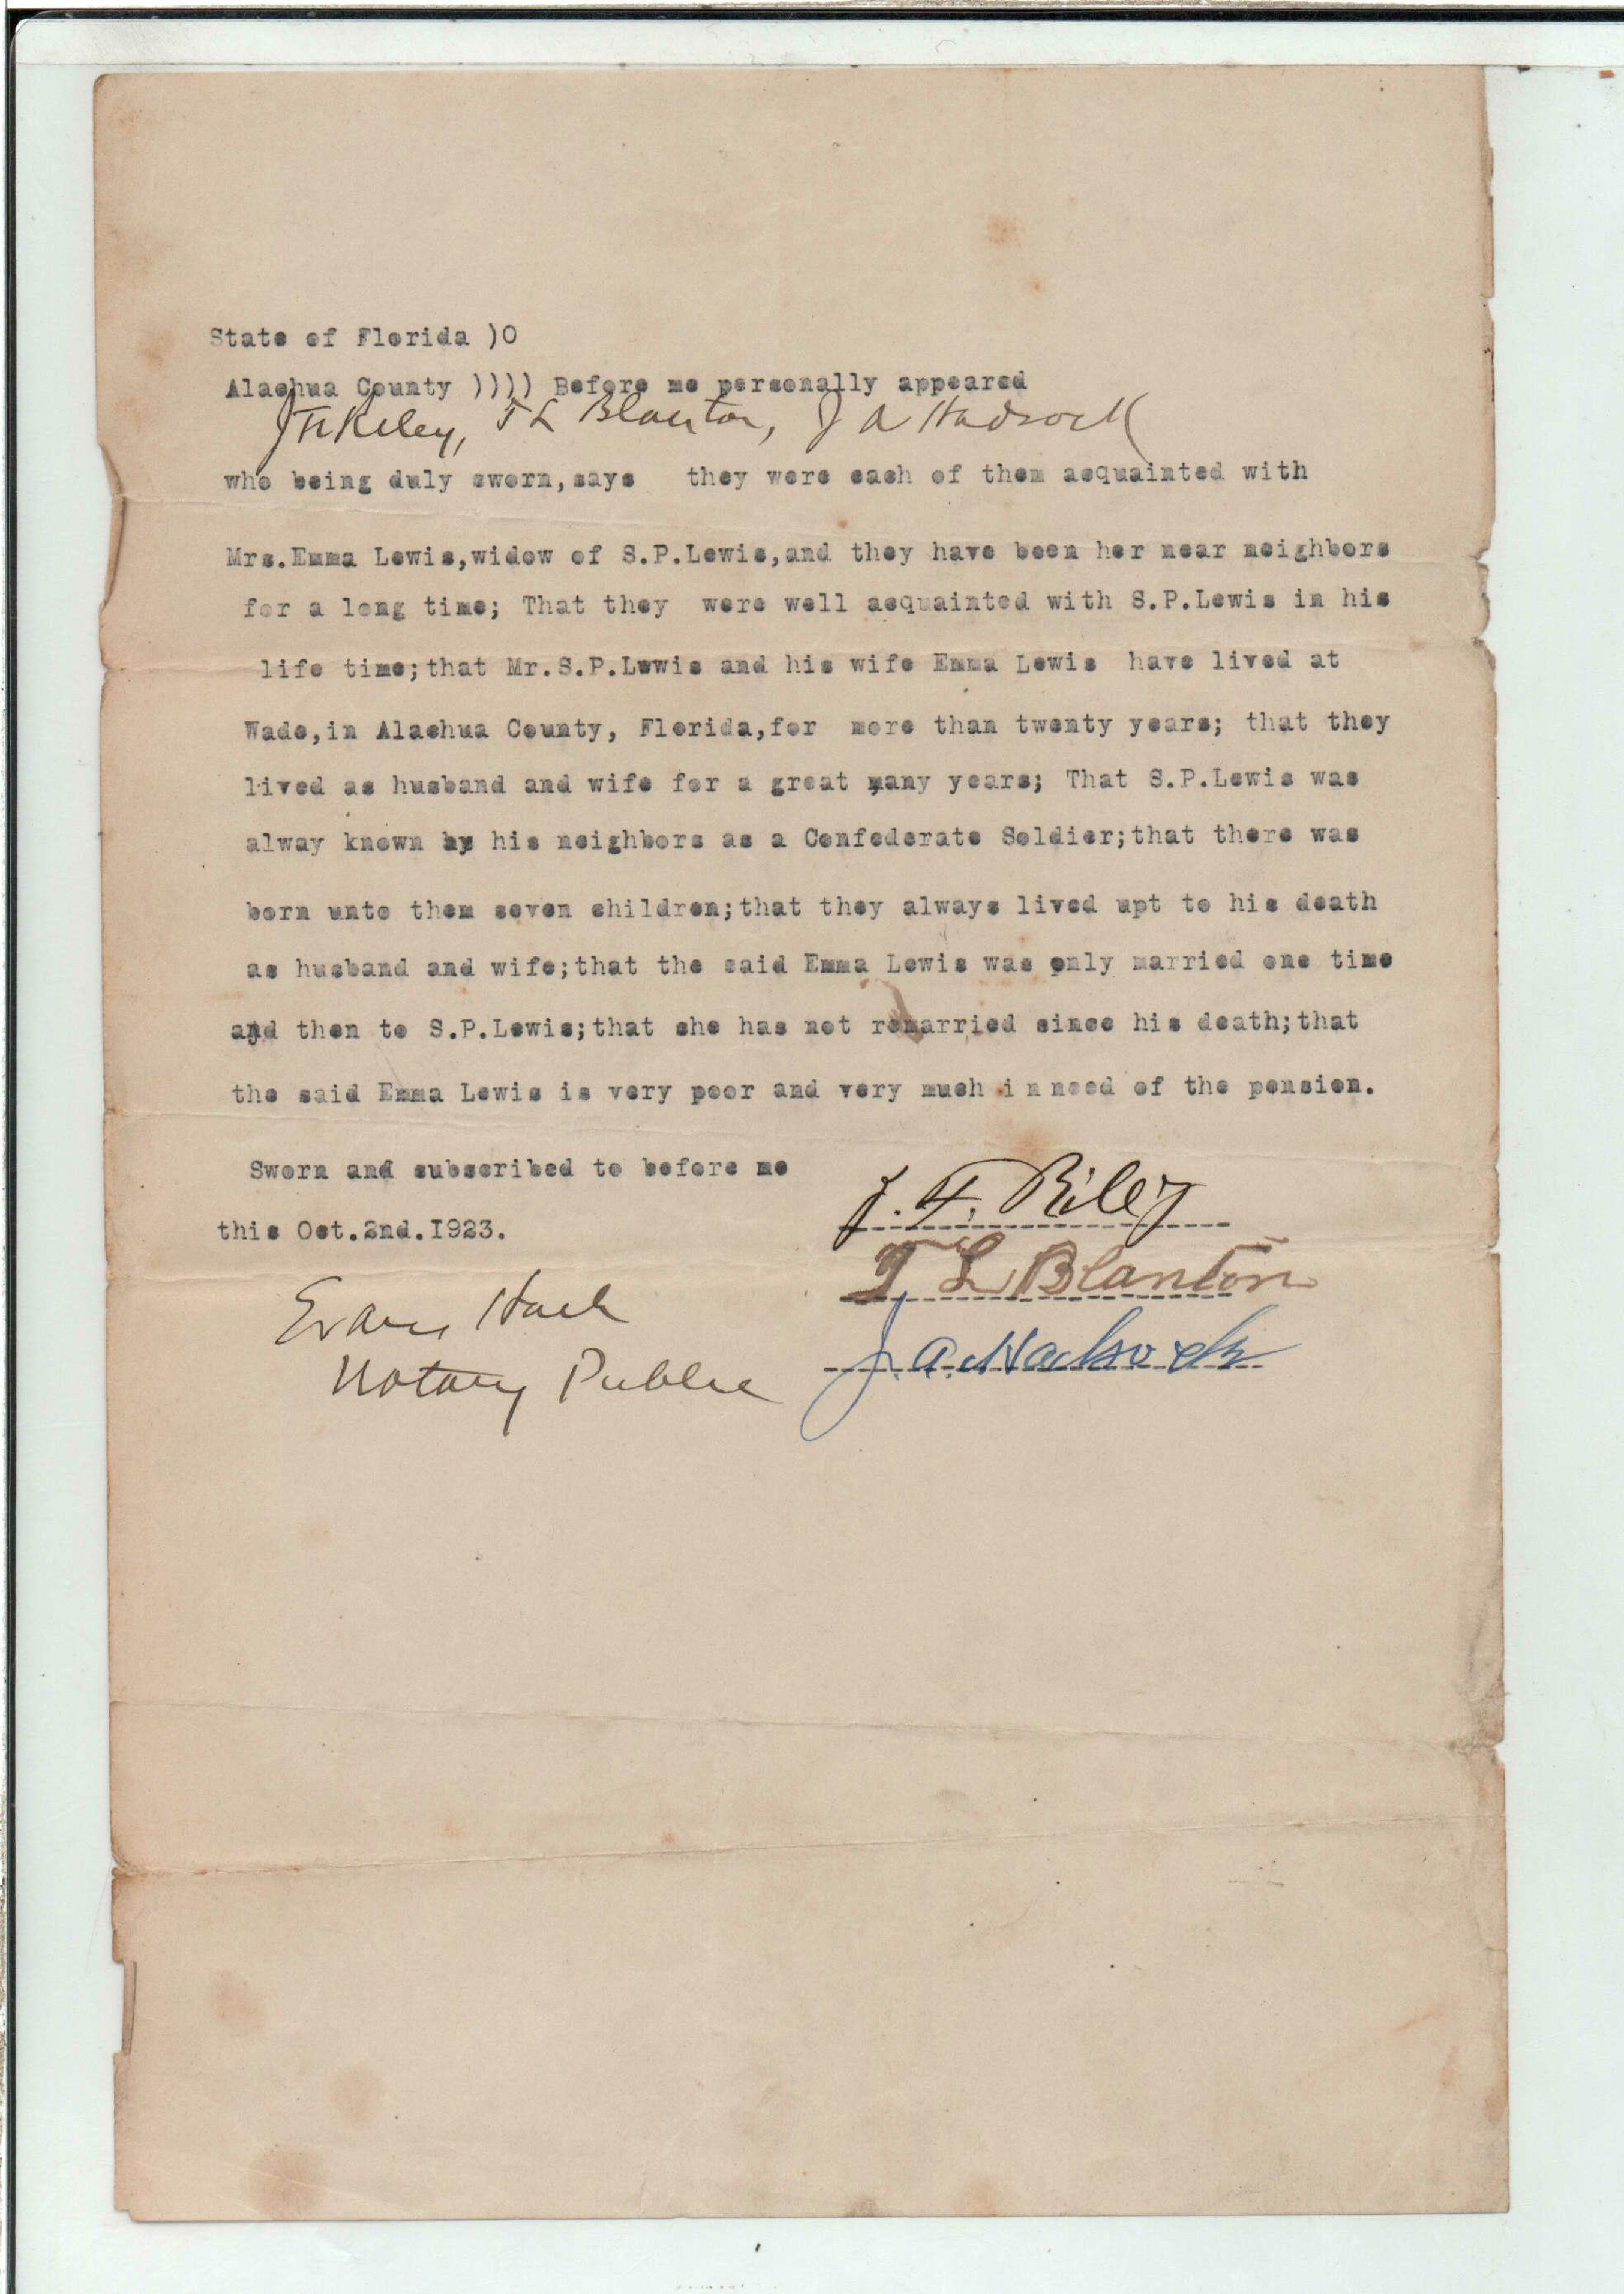 State of Florida )O
Alachua County )))) Before me personally appeared
J F Riley, T L Blanton, J A Hadsock
who being duly sworn,says they were each of them acquainted with
Mrs.Emma Lewis,widow of S.P.Lewis,and they have been her near neighbors
for a long time; That they were well acquainted with S.P.Lewis in his
life time;that Mr.S.P.Lewis and his wife Emma Lewis have lived at
Wade,in Alachua County, Florida,for more than twenty years; that they
lived as husband and wife for a great many years; That S.P.Lewis was
alway known by his neighbors as a Confederate Soldier;that there was
born unto them seven children;that they always lived upt to his death
as husband and wife;that the said Emma Lewis was only married one time
and then to S.P.Lewis;that she has not remarried since his death;that
the said Emma Lewis is very poor and very much in need of the pension.
Sworn and subscribed to before me
this Oct.2nd.I923.
J. F. Riley
T L Blanton
J. A. Hadsock
Notary Public